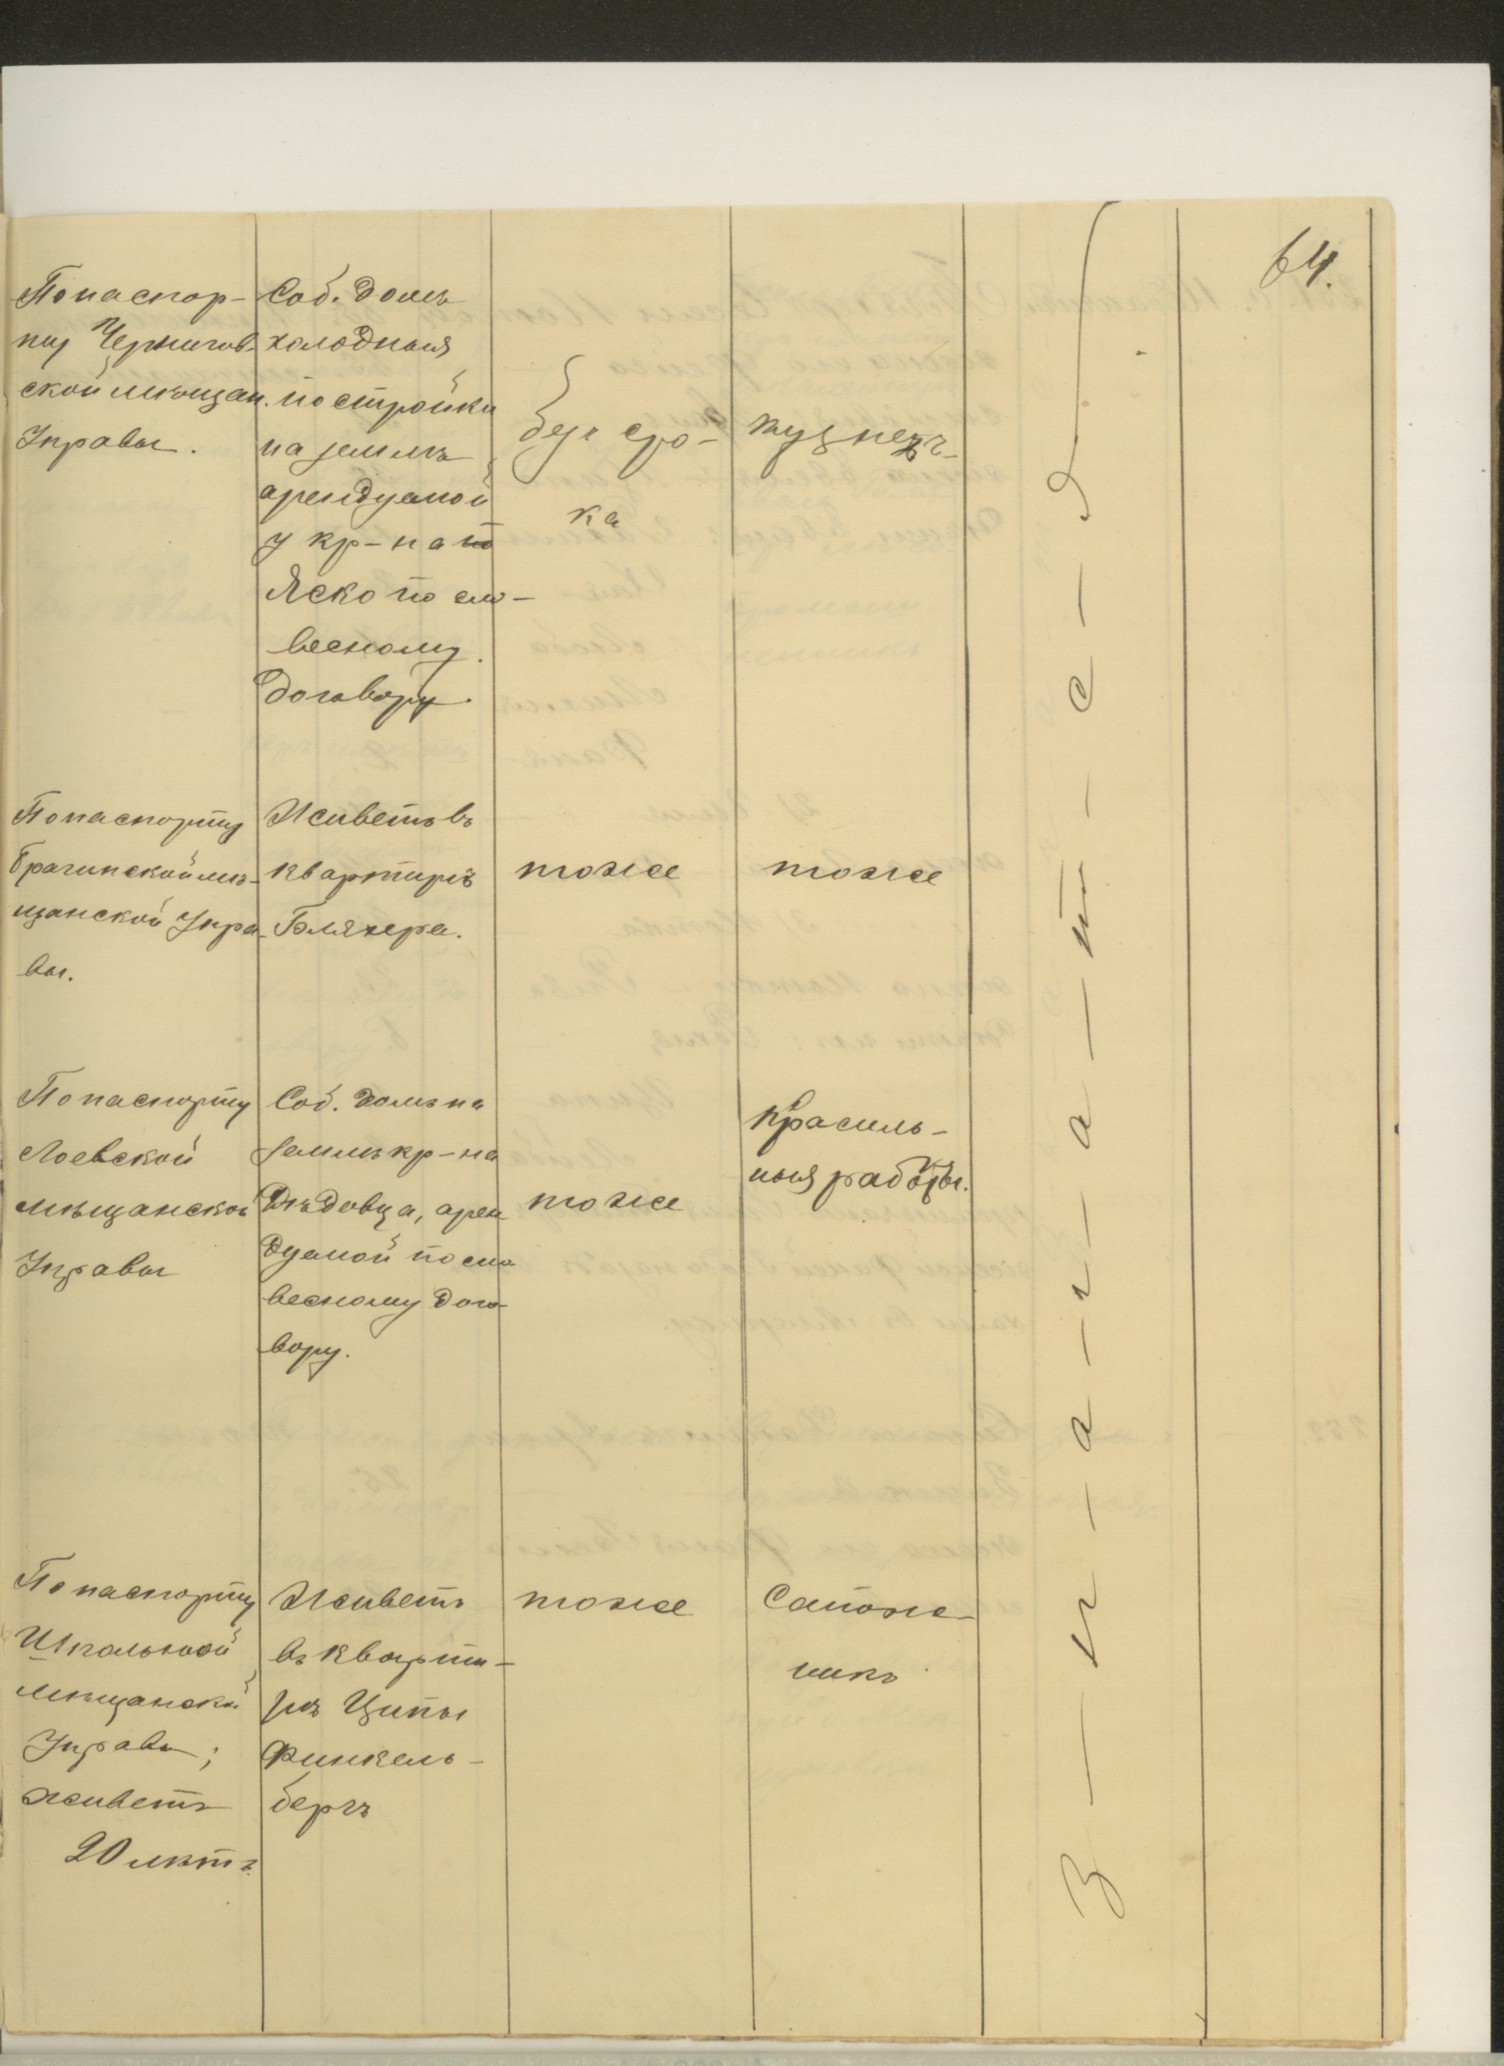 64.
По паспор-
ту Чернигов-
ской мещан.
Управы.
Соб. домъ
холодныя
постройки
на землѣ
арендуемой
у кр-на
Яско по сло-
весному
договору.
без сро-
ка
кузнецъ
По паспорту
Брагинской мѣ-
щанской Упра-
вы.
Живетъ въ
квартирѣ
Бляхера.
тоже
тоже
По паспорту
Лоевской
мѣщанской
Управы
Соб. домъ на
землѣ кр-на
Дѣдовца, арен
дуемой по сло
весному дого-
вору.
тоже
красиль-
ныя работы.
По паспорту
мѣщанской
Управы;
живетъ
20 лѣтъ.
Живетъ
въ кварти-
рѣ Ципы
Финкель-
бергъ
тоже
Сапож-
никъ
З-н-а-ч-а-т-с-я